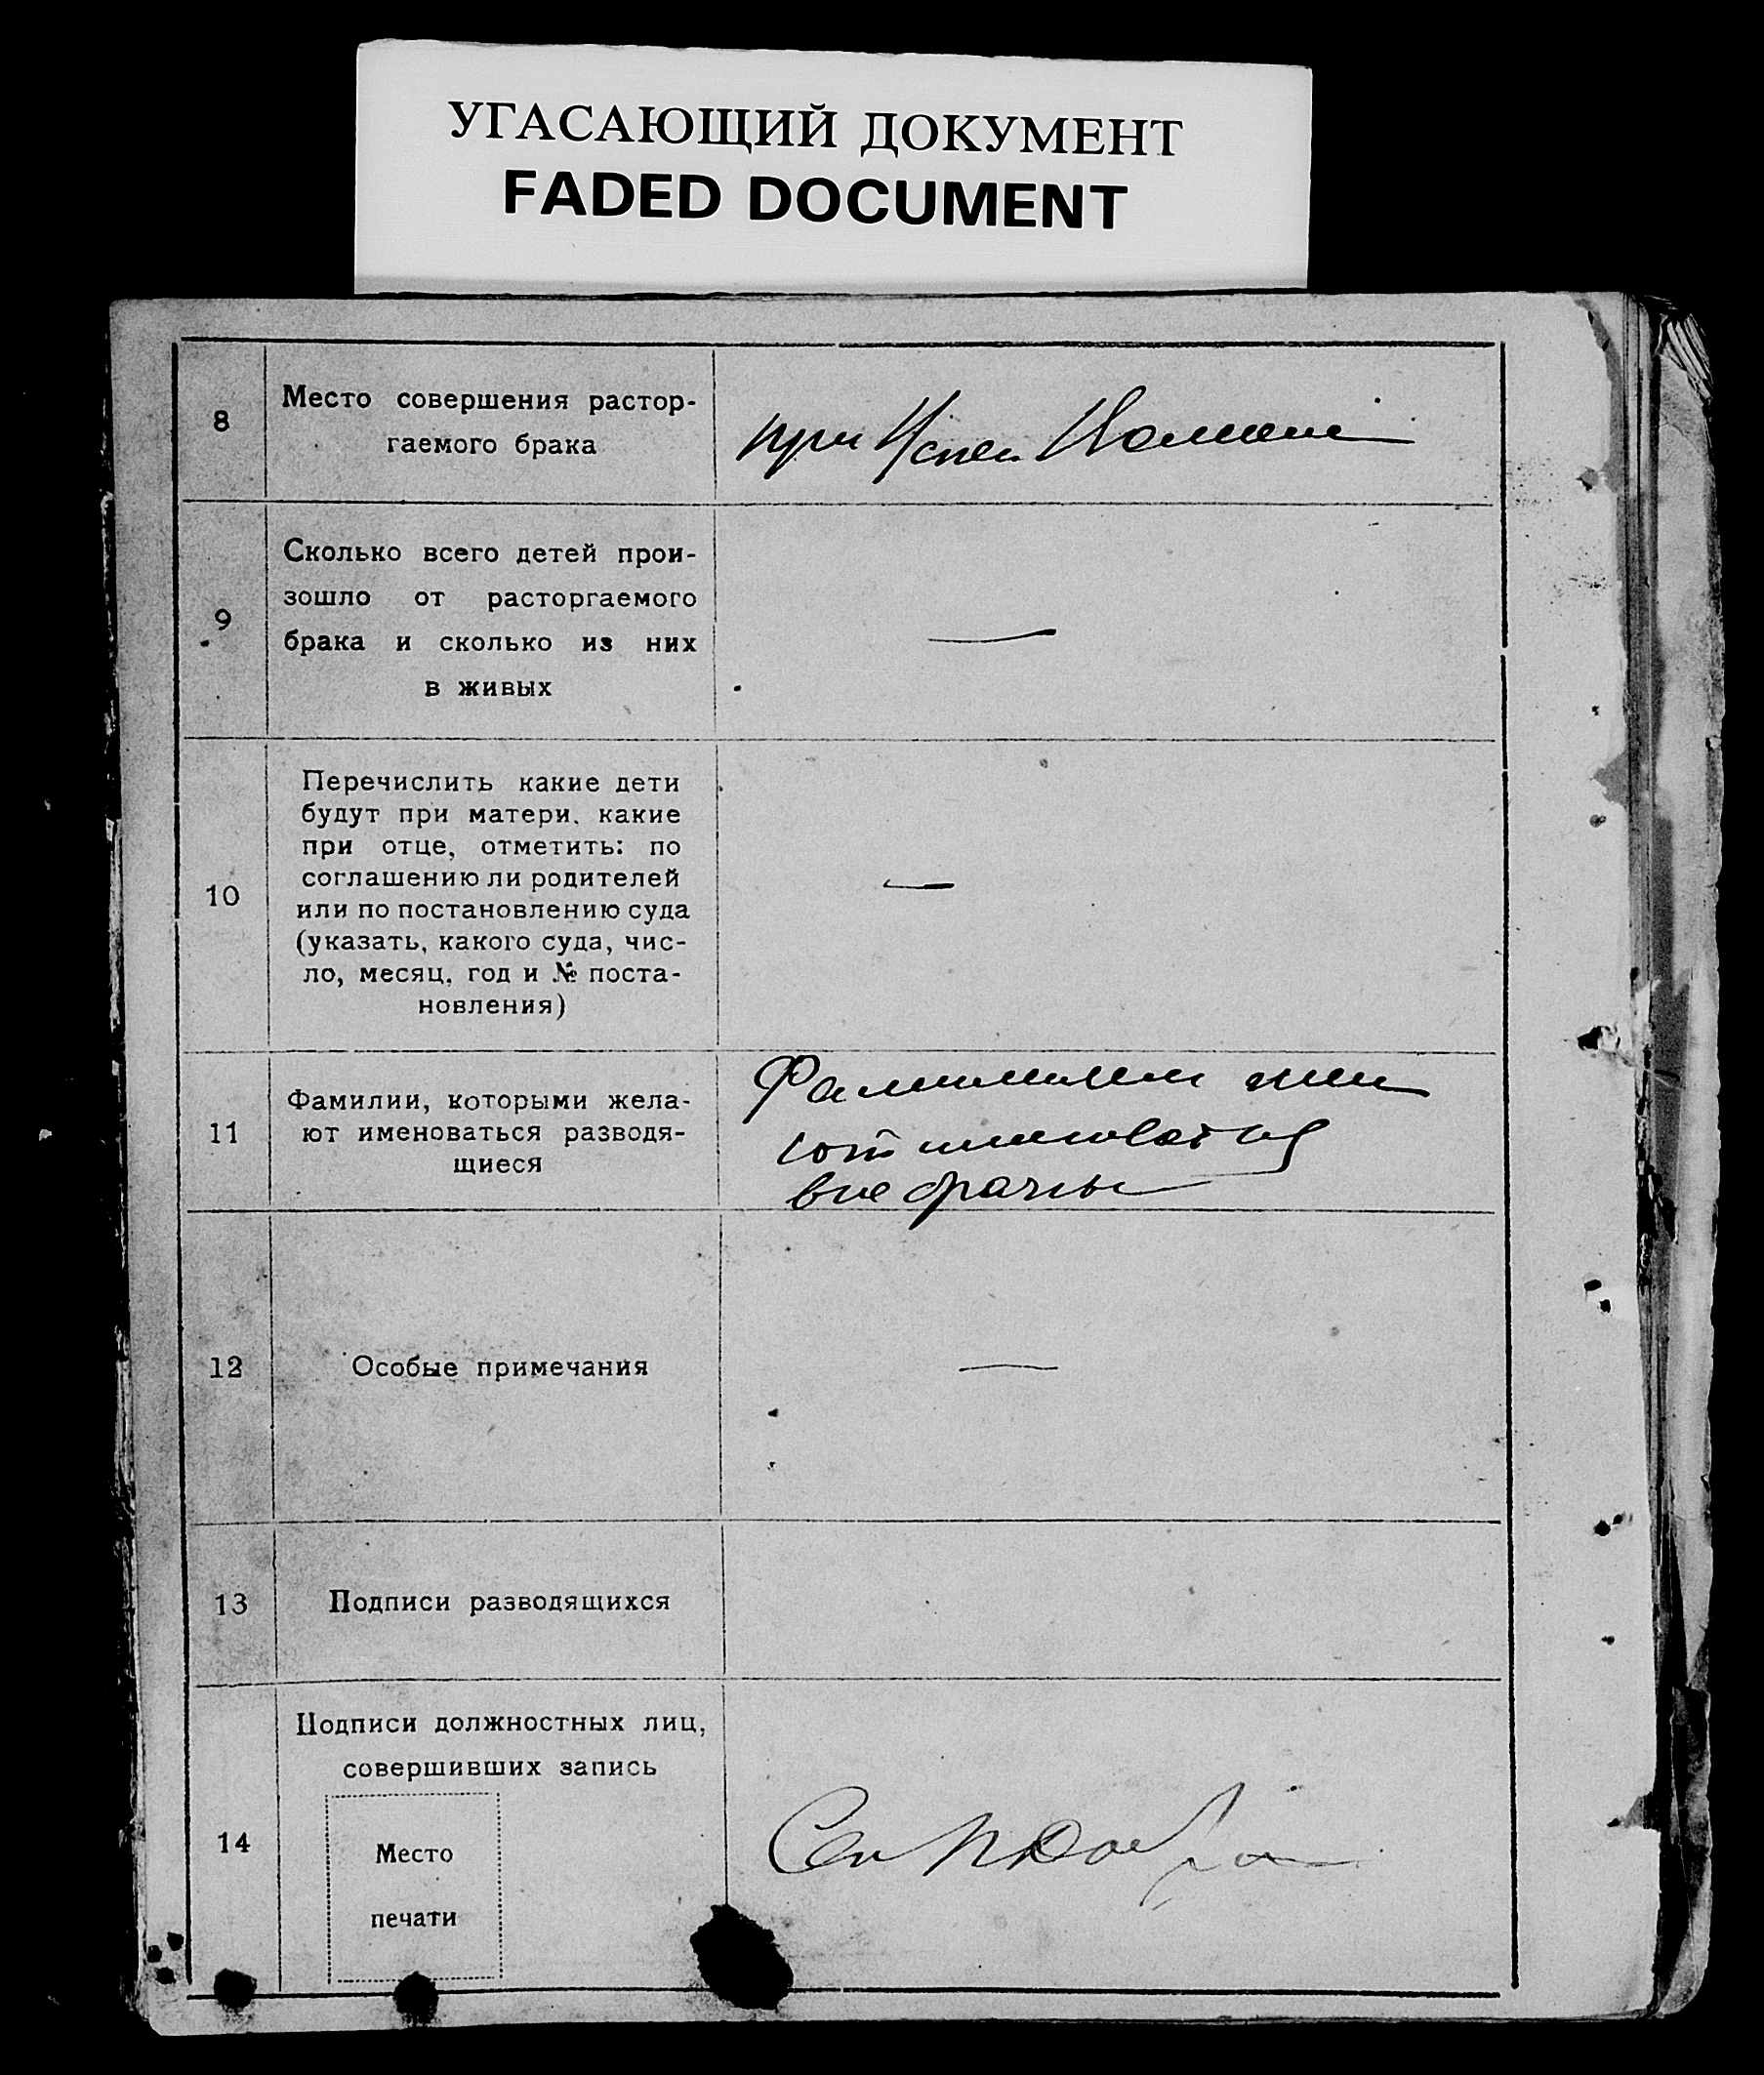 УГАСАЮЩИЙ ДОКУМЕНТ
FADED DOCUMENT
8
Место совершения растор-
гаемого брака
при Испол
9
Сколько всего детей прои-
зошло от расторгаемого
брака и сколько из них
в живых
—
10
Перечислить какие дети
будут при матери, какие
при отце, отметить: по
соглашению ли родителей
или по постановлению суда
(указать, какого суда, чис-
ло, месяц, год и № поста-
новления)
—
11
Фамилии, которыми жела-
ют именоваться разводя-
щиеся
Фамилиями жела
ют именоваться
вне брачны
12
Особые примечания
—
13
Подписи разводящихся
14
Подписи должностных лиц,
совершивших запись
Место
печати